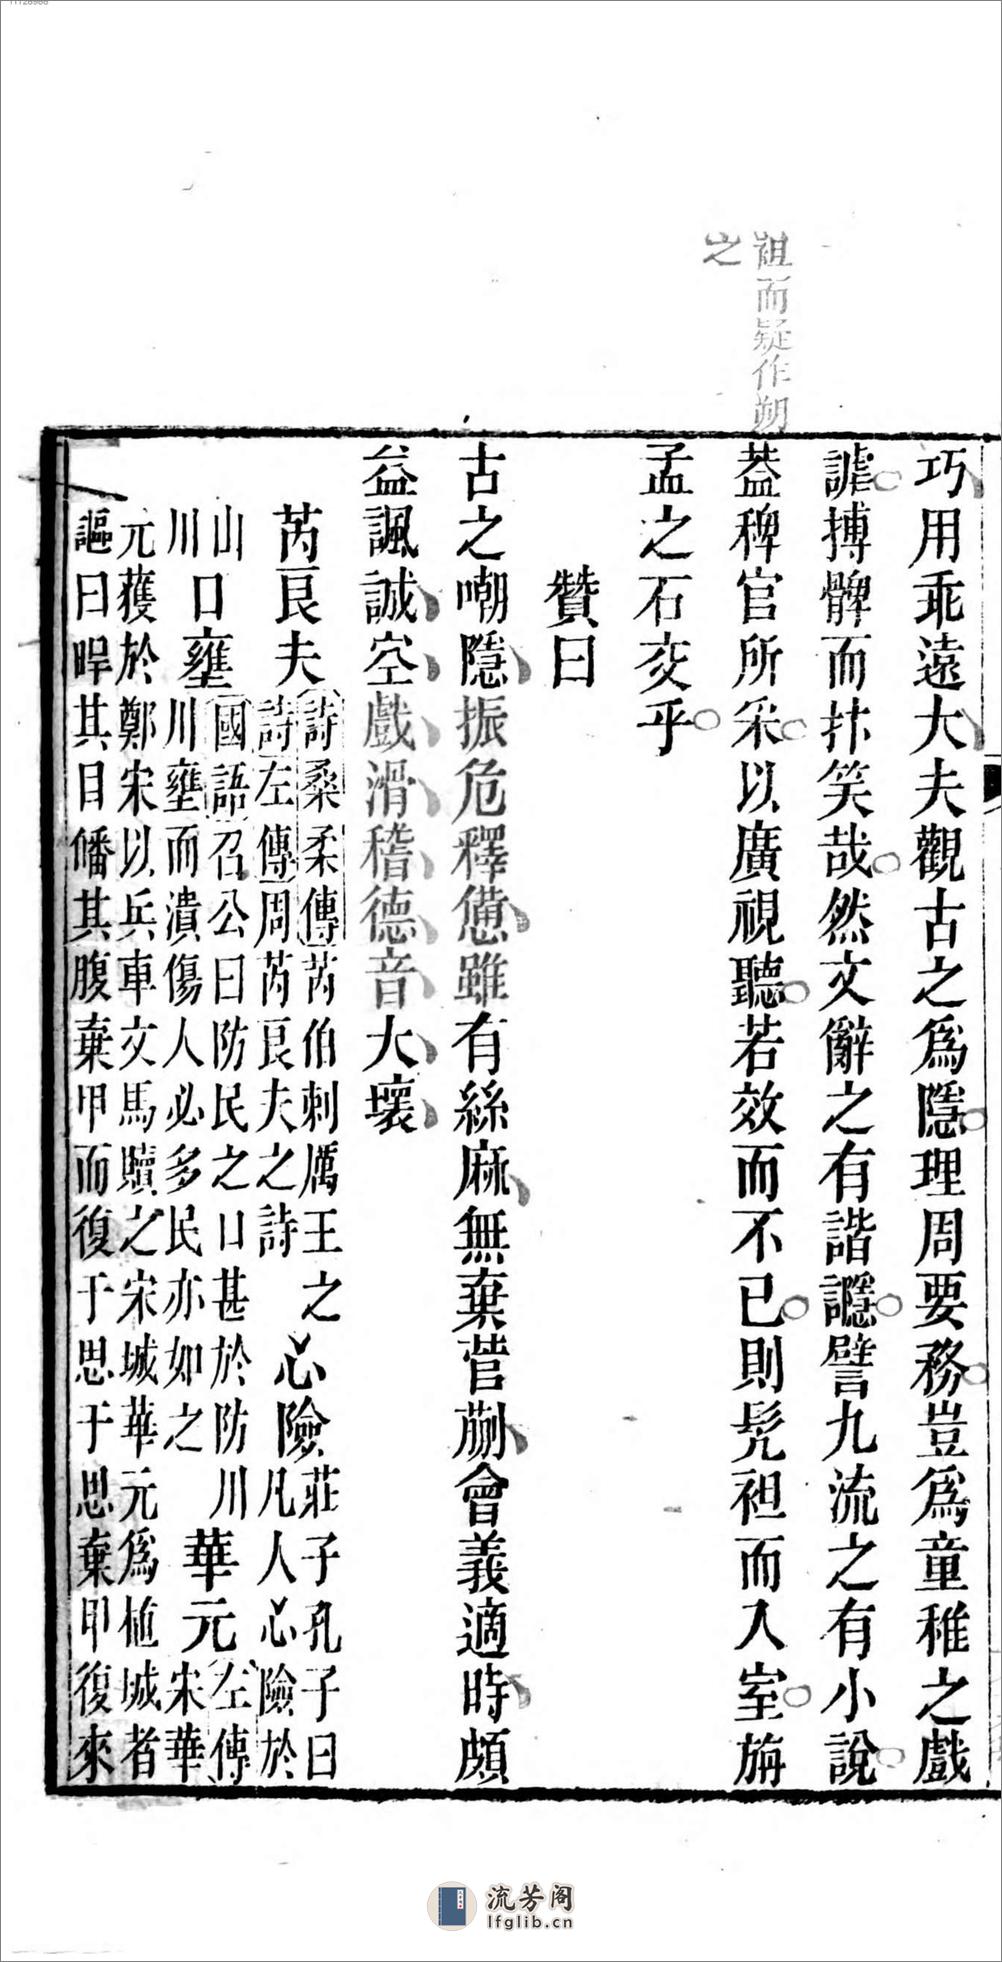 11128988
袒而疑作朔
之
巧用乖遠大夫觀古之為隱理周要務豈為童稚之戲
謔搏髀而抃笑哉然文辭之有諧讔譬九流之有小說
葢稗官所采以廣視聽若效而不已則髠袒而入室旃
孟之石交乎
贊曰
古之嘲隱振危釋憊雖有絲麻無棄菅蒯會義適時頗
益諷誡空戲滑稽德音大壞
芮良夫詩桑柔傳芮伯刺厲王之
詩左傳周芮良夫之詩心險莊子孔子曰
凡人心險於
山川口壅國語召公曰防民之口甚於防川
川壅而潰傷人必多民亦如之華元左傳
宋華
元獲於鄭宋以兵車文馬贖之宋城華元為植城者
謳曰睅其目皤其腹棄甲而復于思于思棄甲復來
流芳阁
lfglib.cn